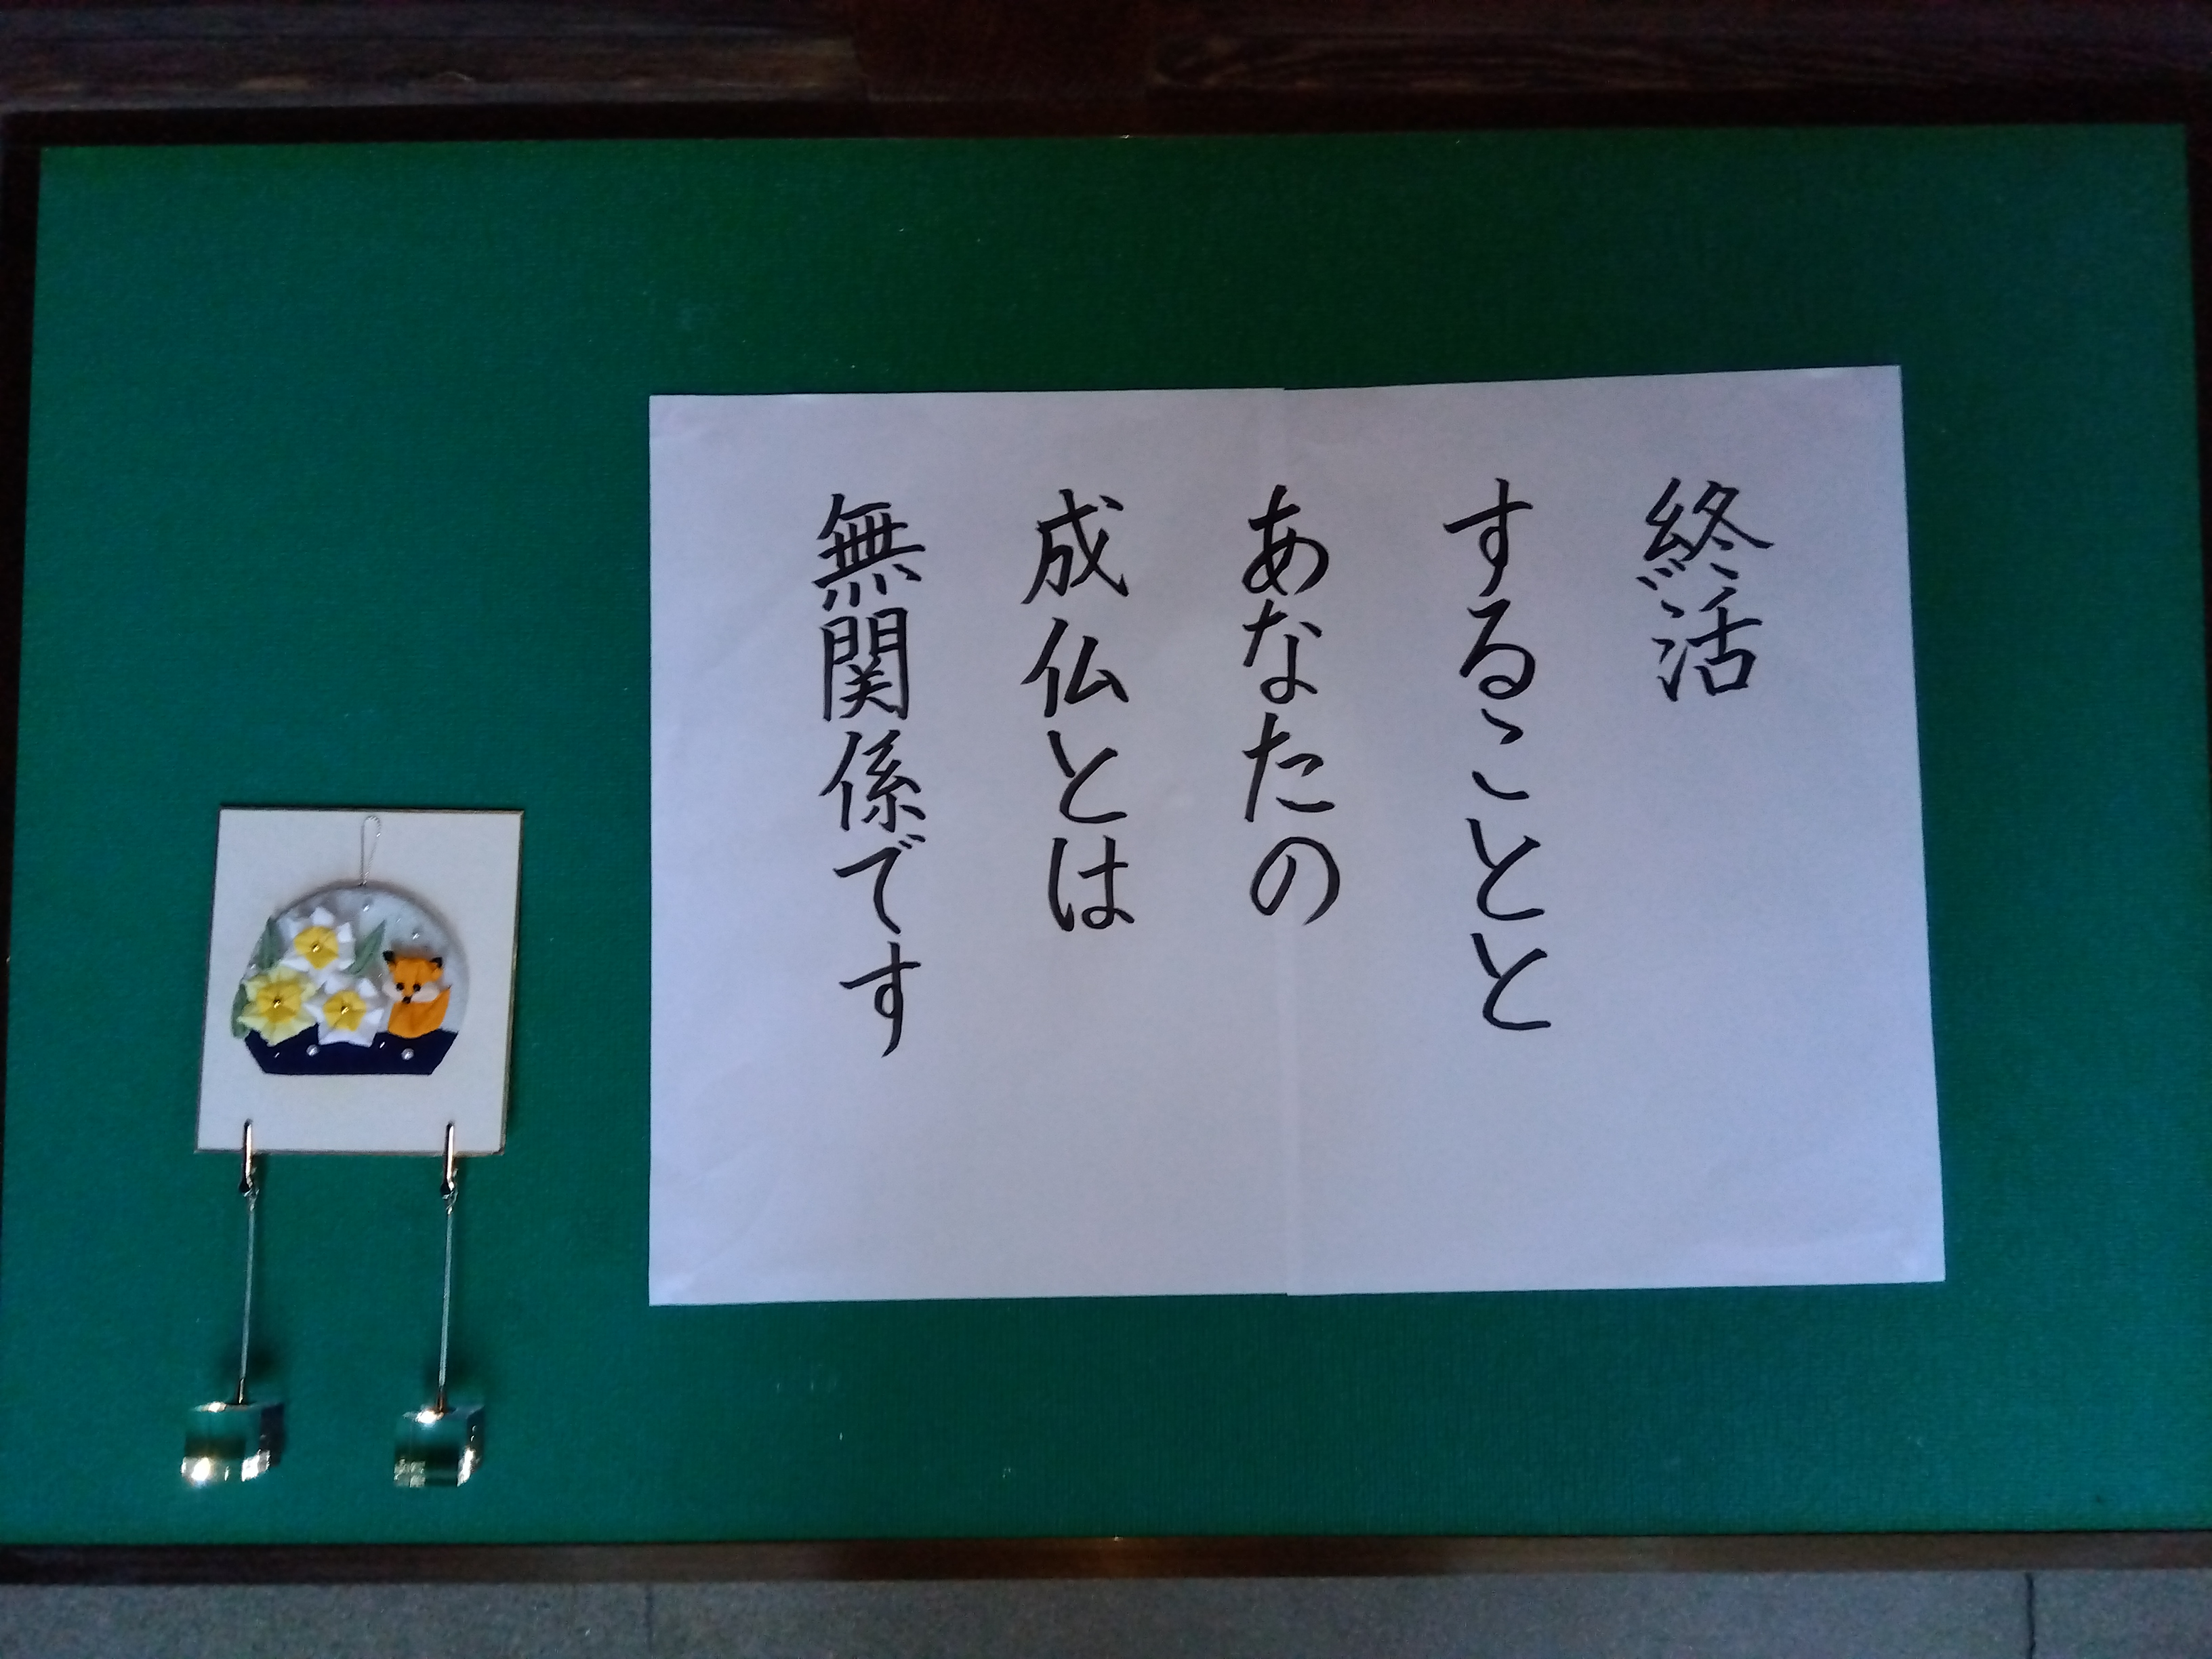 終活
することと
あなたの
成仏とは
無関係です